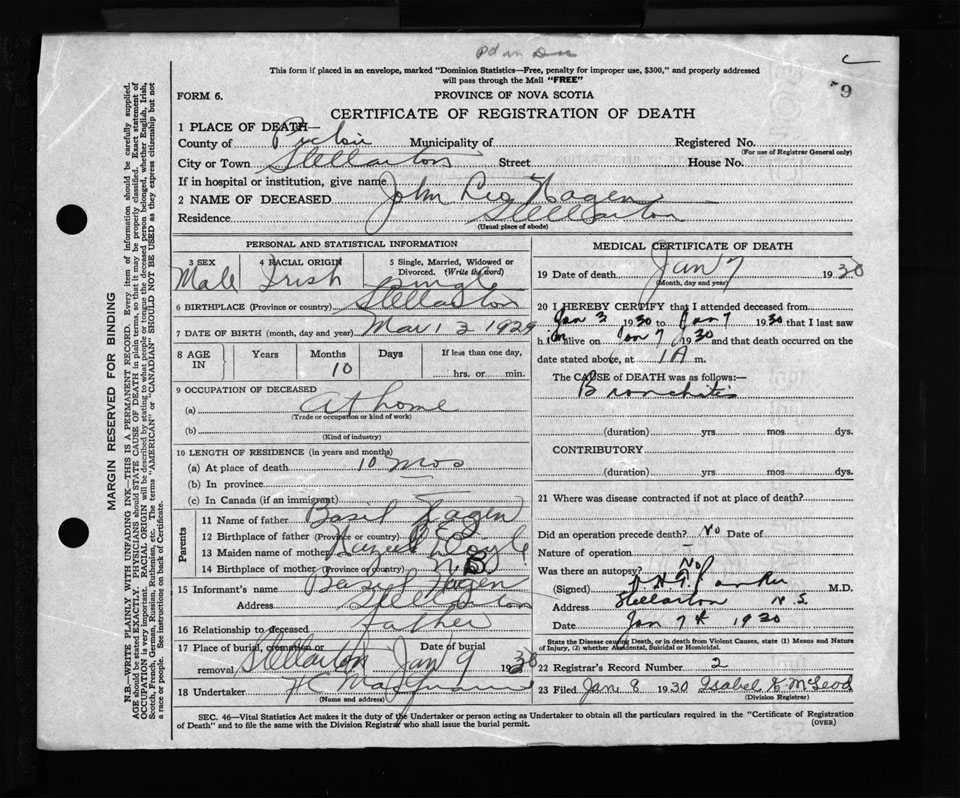 This form if placed in an envelope, marked "Dominion Statistics—Free, penalty for improper use, $300," and properly addressed
will pass through the Mail "FREE"
9
FORM 6. PROVINCE OF NOVA SCOTIA
CERTIFICATE OF REGISTRATION OF DEATH
1 PLACE OF DEATH—
County of Pictou Municipality of Registered No.
(For use of Registrar General only)
City or Town Stellarton Street House No.
If in hospital or institution, give name
2 NAME OF DECEASED John Leo Hagen
Residence Stellarton
(Usual place of abode)
MARGIN RESERVED FOR BINDING
N.B.—WRITE PLAINLY WITH UNFADING INK—THIS IS A PERMANENT RECORD. Every item of information should be carefully supplied.
AGE should be stated EXACTLY. PHYSICIANS should STATE CAUSE OF DEATH in plain terms, so that it may be properly classified. Exact statement of
OCCUPATION is very important. RACIAL ORIGIN will be described by stating to what people or tongue the deceased person belonged, whether English, Irish,
Scotch, French, German, Russian, Ruthenian, etc. The terms "AMERICAN" or "CANADIAN" SHOULD NOT BE USED as they express citizenship but not
a race or people. See instructions on back of Certificate.
PERSONAL AND STATISTICAL INFORMATION
3 SEX 4 RACIAL ORIGIN 5 Single, Married, Widowed or
Divorced. (Write the word)
Male Irish Single
6 BIRTHPLACE (Province or country) Stellarton
7 DATE OF BIRTH (month, day and year) Mar 13 1929
8 AGE IN Years Months Days If less than one day,
10 hrs. or min.
9 OCCUPATION OF DECEASED
(a) At home
(Trade or occupation or kind of work)
(b)
(Kind of industry)
10 LENGTH OF RESIDENCE (in years and months)
(a) At place of death 10 mos
(b) In province
(c) In Canada (if an immigrant)
Parents
11 Name of father Basil Hagen
12 Birthplace of father (Province or country)
13 Maiden name of mother Hazel Doyle
14 Birthplace of mother (Province or country) N.S.
15 Informant's name Basil Hagen
Address Stellarton
16 Relationship to deceased Father
17 Place of burial, cremation or Date of burial
removal Stellarton Jan 9 1930
18 Undertaker
(Name and address)
MEDICAL CERTIFICATE OF DEATH
19 Date of death Jan 7 1930
(Month, day and year)
20 I HEREBY CERTIFY that I attended deceased from
Jan 3 1930 to Jan 7 1930 that I last saw
him alive on Jan 7 1930 and that death occurred on the
date stated above, at 1 A m.
The CAUSE of DEATH was as follows:—
Bronchitis
(duration) yrs. mos dys.
CONTRIBUTORY
(duration) yrs. mos dys.
21 Where was disease contracted if not at place of death?
Did an operation precede death? No Date of
Nature of operation —
Was there an autopsy? No
(Signed) M.D.
Address Stellarton N.S.
Date Jan 7th 1930
State the Disease causing Death, or in death from Violent Causes, state (1) Means and Nature
of Injury, (2) whether Accidental, Suicidal or Homicidal.
22 Registrar's Record Number 2
23 Filed Jan. 8 1930 Isabel K McLeod
(Division Registrar)
SEC. 46—Vital Statistics Act makes it the duty of the Undertaker or person acting as Undertaker to obtain all the particulars required in the "Certificate of Registration
of Death" and to file the same with the Division Registrar who shall issue the burial permit. (OVER)